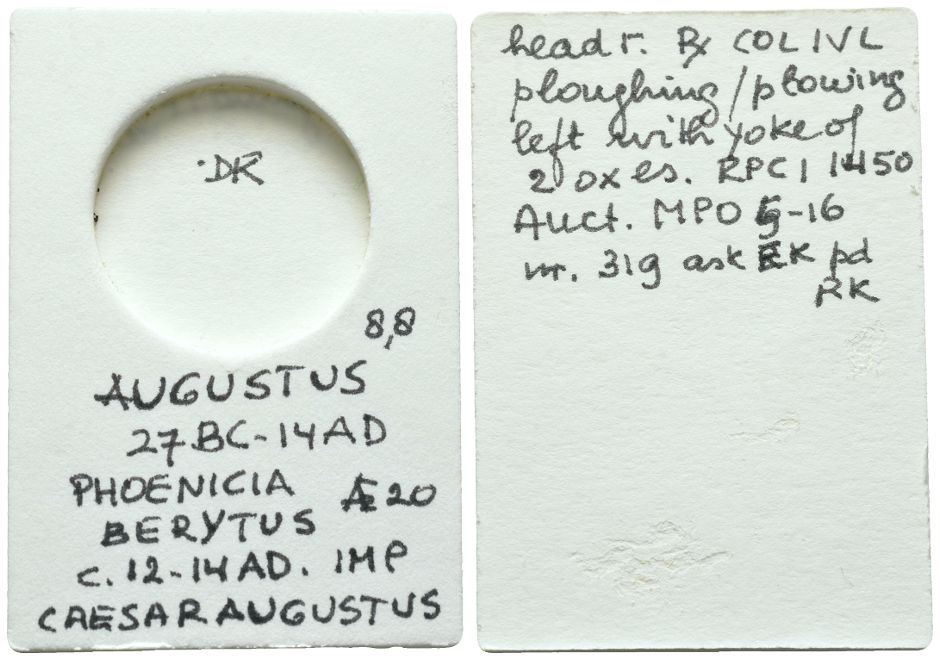 DK
8,8
AUGUSTUS
27 BC-14 AD
PHOENICIA Æ 20
BERYTUS
c. 12-14 AD. IMP
CAESAR AUGUSTUS
head r. Rx COL IVL
ploughing/plowing
left with yoke of
2 oxes. RPC I 1450
Auct. MPO 5-16
nr. 319 ask EK pd
RK